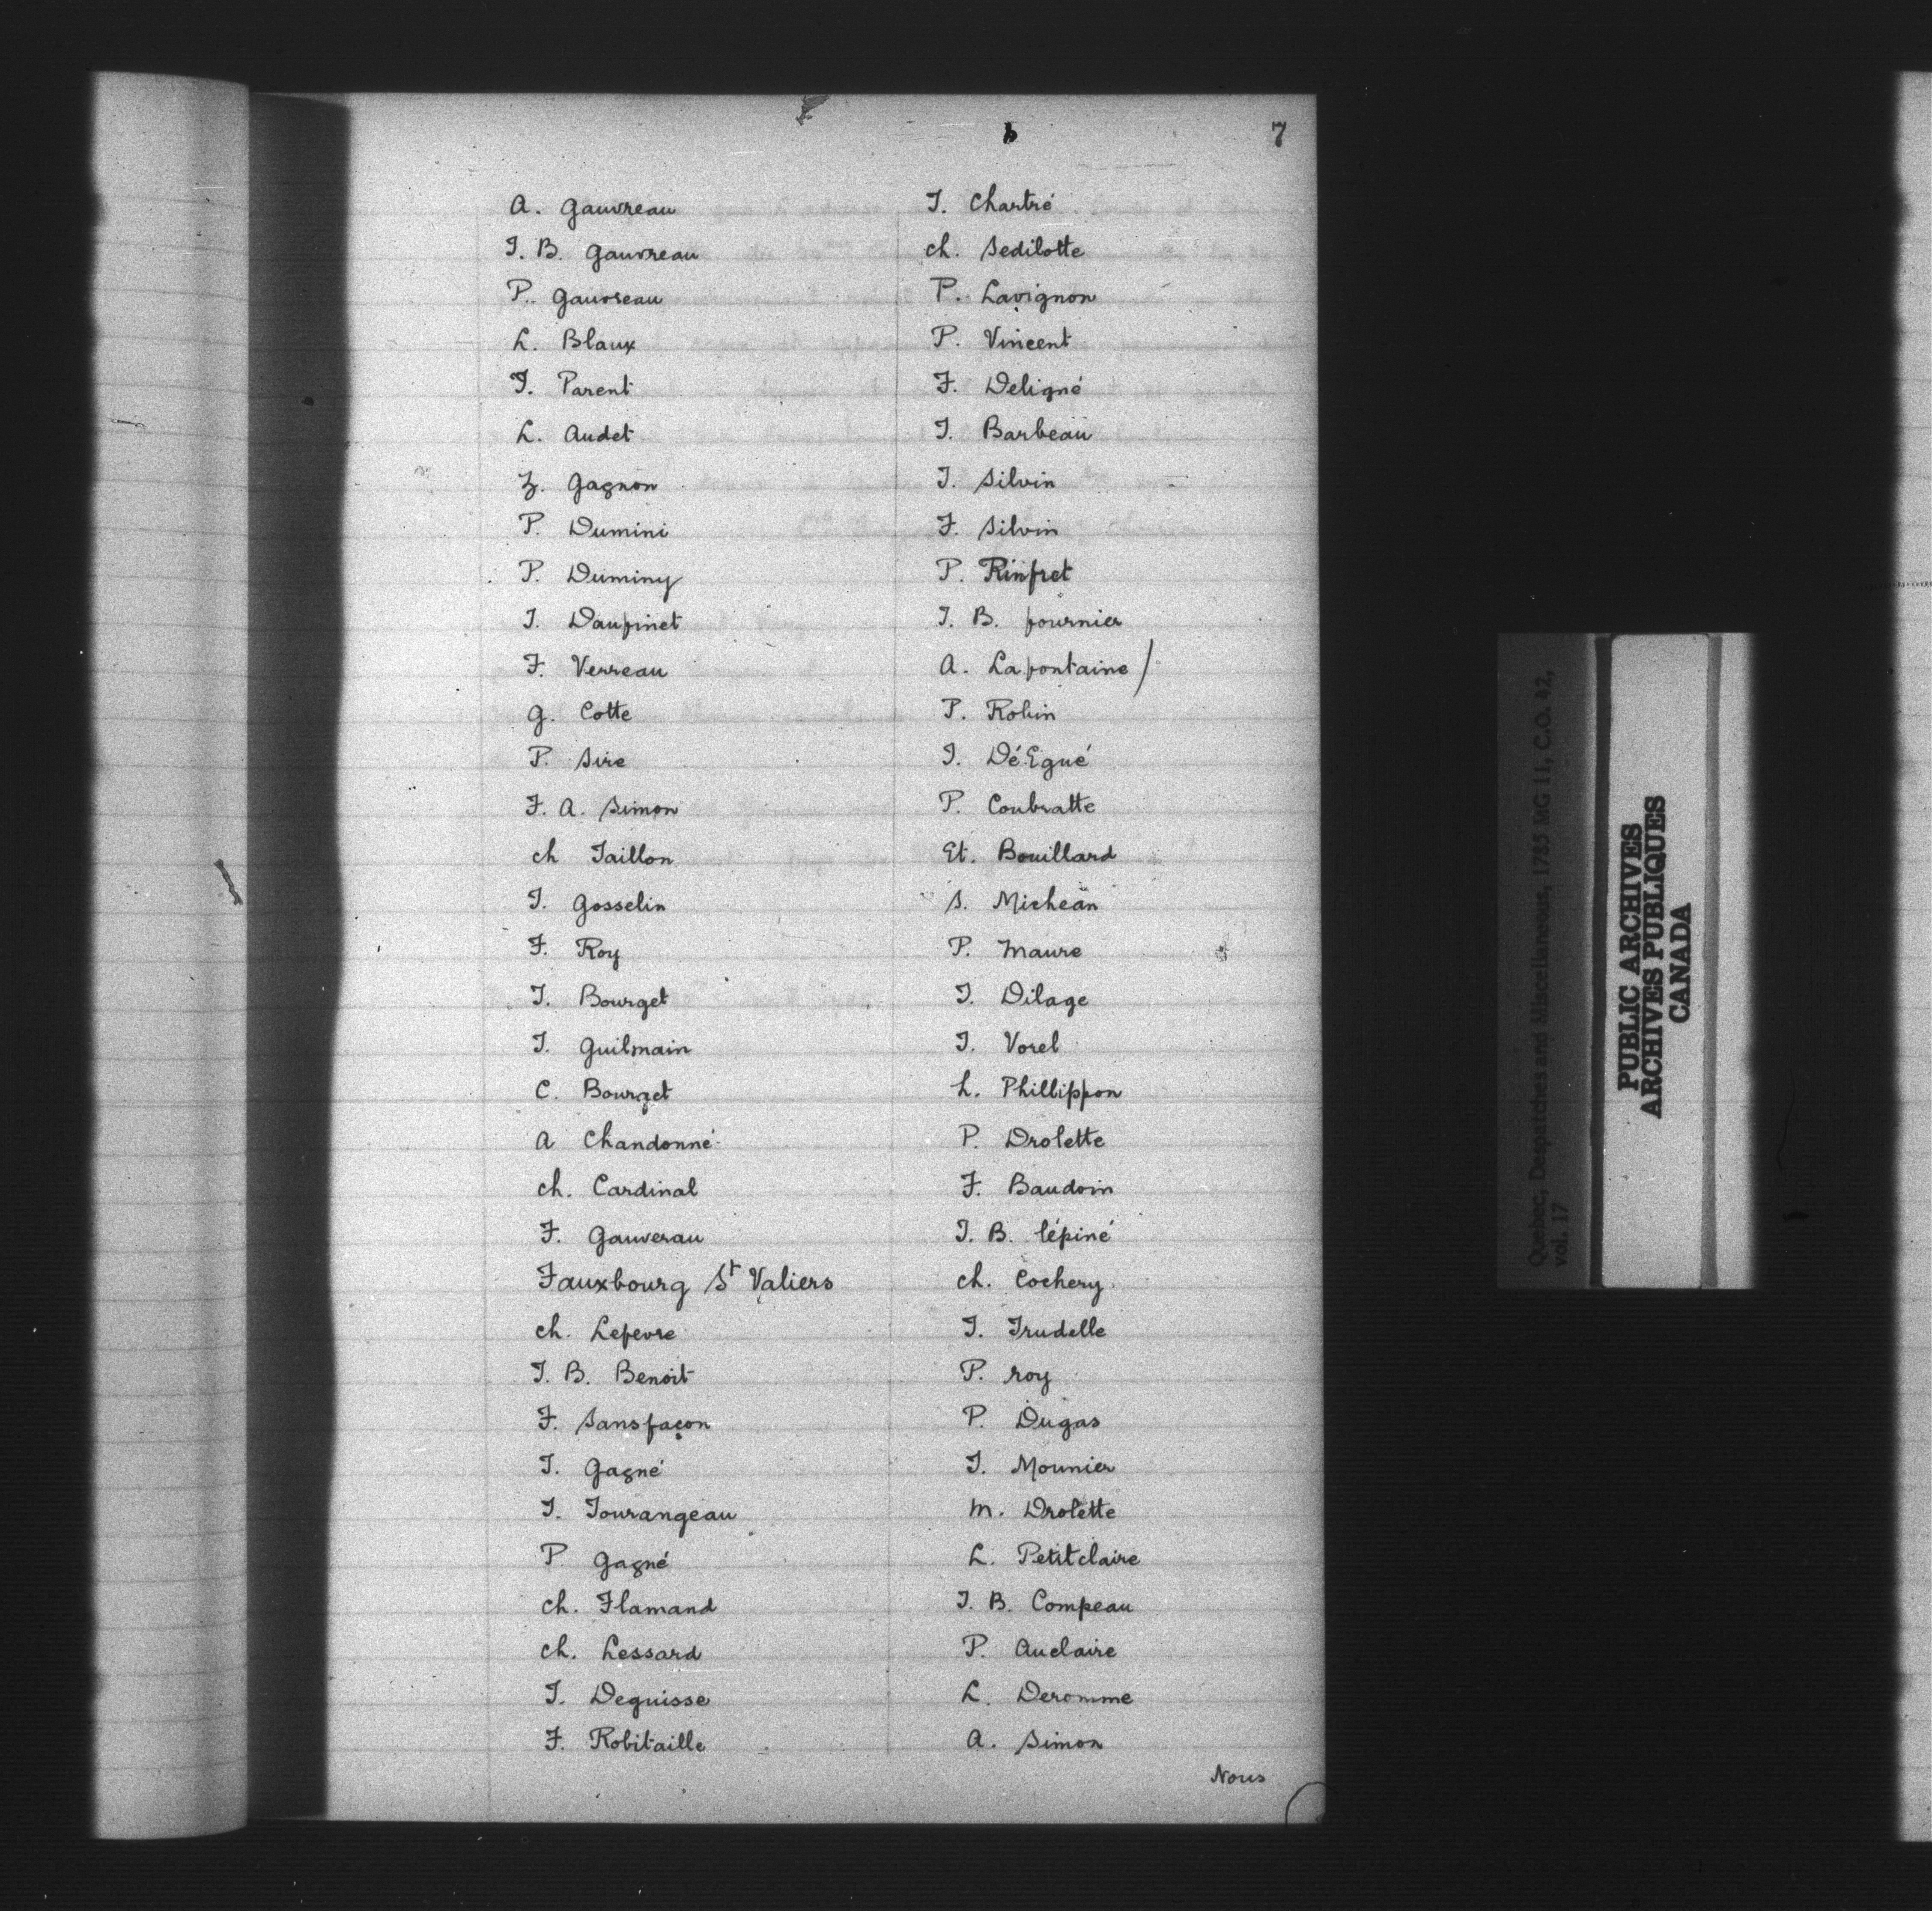 7
A. Gauvreau
J. B. Gauvreau
P. Gauvreau
L. Blaux
J. Parent
L. Audet
Z. Gagnon
P. Dumini
P. Duminy
J. Daupinet
F. Verreau
G. Cotte
P. Sire
F. A. Simon
ch Taillon
J. Gosselin
F. Roy
J. Bourget
J. Guilmain
C. Bourget
A Chandonné
ch. Cardinal
F. Gauverau
Fauxbourg St Valiers
ch. Lefevre
J. B. Benoit
F. Sansfaçon
J. Gagné
J. Tourangeau
P Gagné
ch. Flamand
ch. Lessard
J. Deguisse
F. Robitaille
J. Chartré
ch. Sedilotte
P. Lavignon
P. Vincent
F. Deligné
J. Barbeau
J. Silvin
F. Silvin
P. Rinfret
J. B. fournier
A. Lafontaine /
P. Robin
J. DéEgué
P. Coubratte
Et. Bouillard
S. Micheau
P. Maure
J. Dilage
J. Vorel
L. Phillippon
P. Drolette
F. Baudoin
J. B. lépiné
ch. Cochery
J. Trudelle
P. roy
P. Dugas
J. Mounier
M. Drolette
L. Petitclaire
J. B. Compeau
P. Auclaire
L. Deromme
A. Simon
Nous
Quebec, Despatches and Miscellaneous, 1785 MG 11, C.O. 42,
vol. 17
PUBLIC ARCHIVES
ARCHIVES PUBLIQUES
CANADA